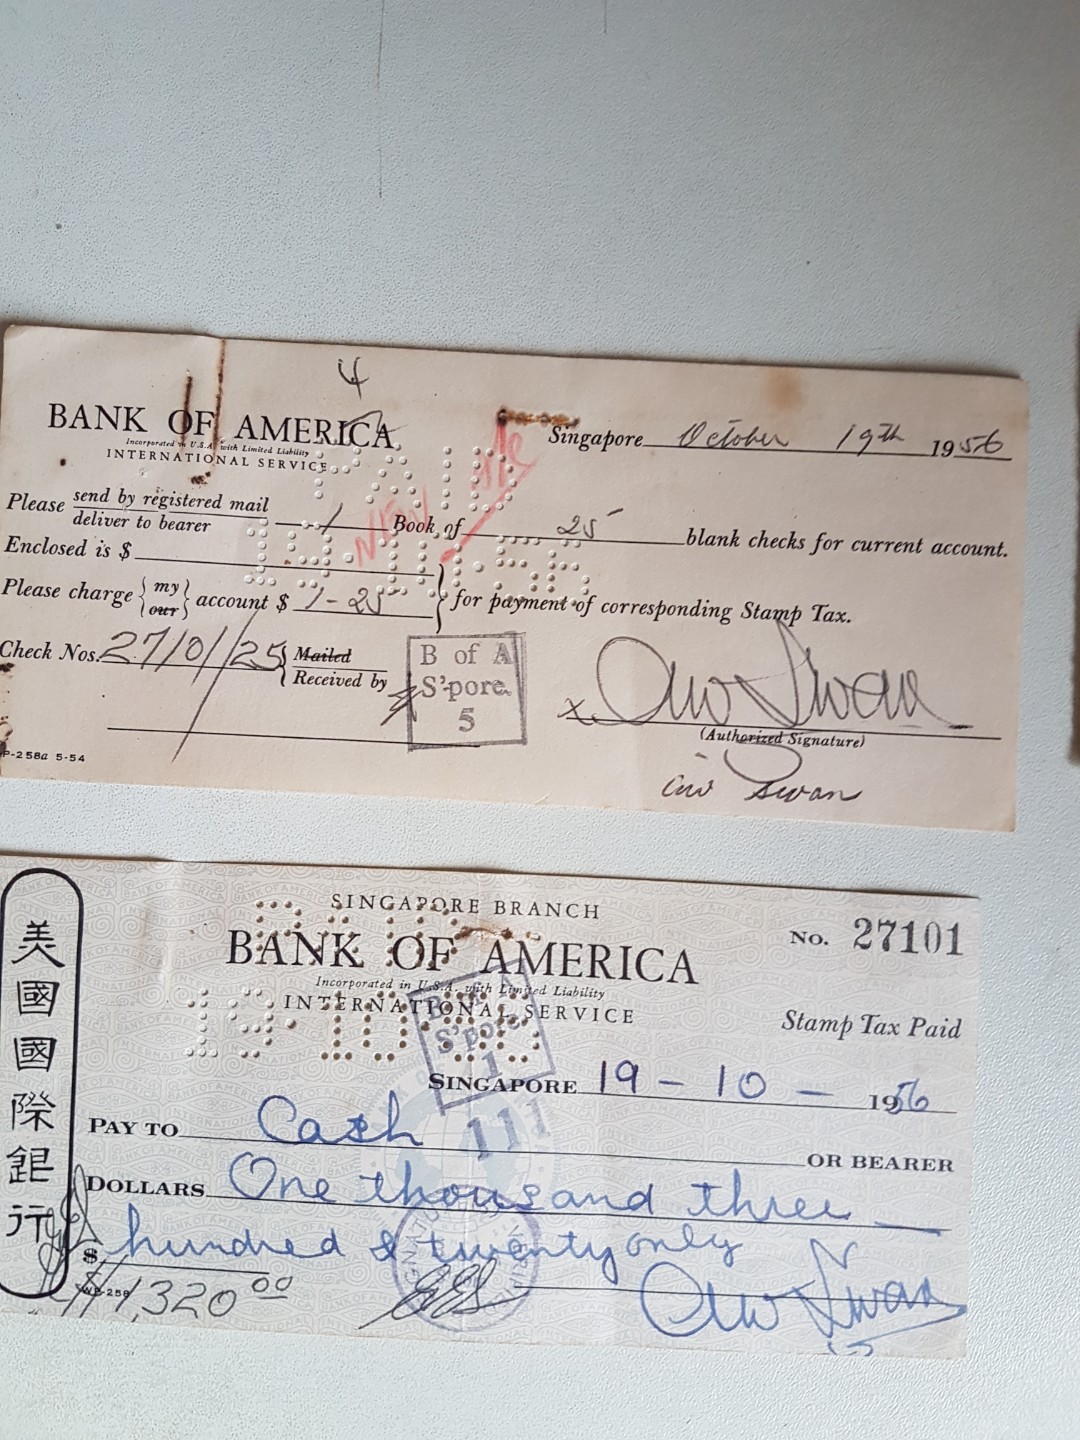 4
BANK OF AMERICA
Incorporated in U.S.A. with Limited Liability
INTERNATIONAL SERVICE
Singapore October 19th 1956
Please send by registered mail
deliver to bearer 1 Book of 25 blank checks for current account.
NEW
PAID
Enclosed is $
Please charge { my
our } account $ 1-25 } for payment of corresponding Stamp Tax.
Check Nos. 27101/25 { Mailed
Received by
B of A
S'pore.
5
x Aw Swan
(Authorized Signature)
Aw Swan
P-258a 5-54
美國國際銀行
SINGAPORE BRANCH
BANK OF AMERICA
Incorporated in U.S.A. with Limited Liability
INTERNATIONAL SERVICE
No. 27101
Stamp Tax Paid
PAID
19·10·56
S'pore
1
SINGAPORE 19 - 10 - 1956
PAY TO Cash OR BEARER
111
DOLLARS One thousand three
$ hundred & twenty only
$1,320 00
Aw Swan